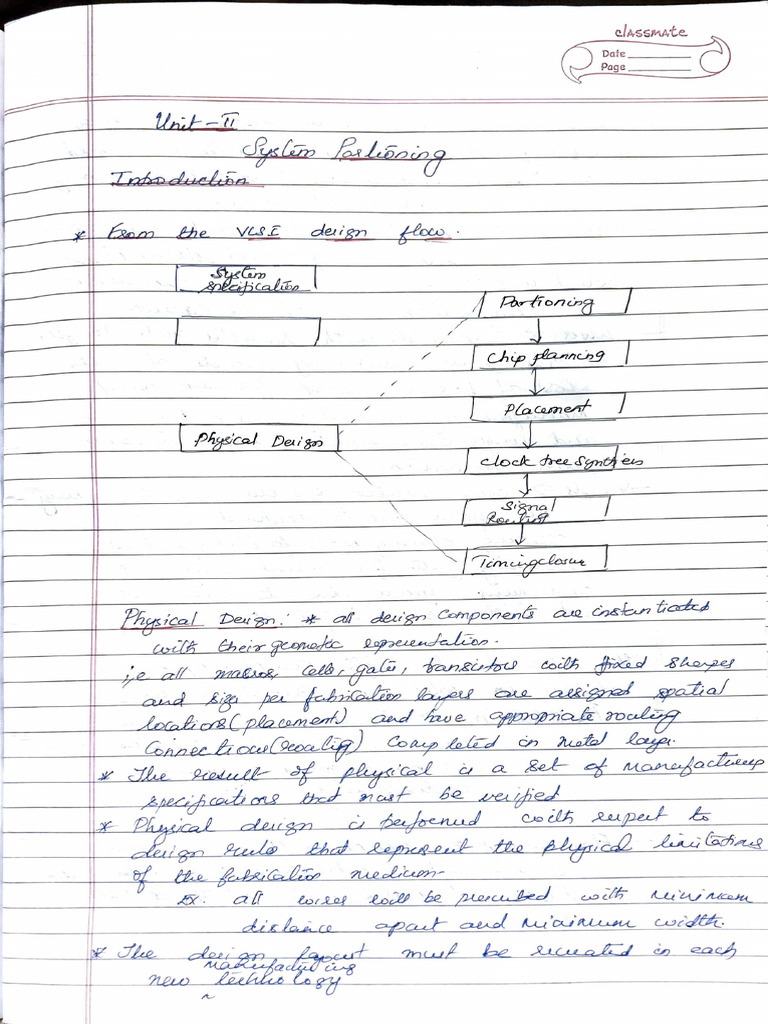 classmate
Date
Page
Unit - II
System Partioning
Introduction
* From the VLSI design flow.
System
specification
Partioning
Chip planning
Placement
Physical Design
Clock tree Synthesis
Signal
Routing
Timing closure
Physical Design: * all design components are instantiated
with their geometric representation.
i,e all macros, cells, gates, transistors with fixed shapes
and size per fabrication layers are assigned spatial
locations (placement) and have appropriate routing
connections (routing) completed in metal layer.
* The result of physical is a set of manufacturing
specifications that must be verified
* Physical design is performed with respect to
design rules that represent the physical limitations
of the fabrication medium.
Ex. all wires will be prescribed with minimum
distance apart and minimum width.
* The design layout must be recreated in each
manufacturing
new technology